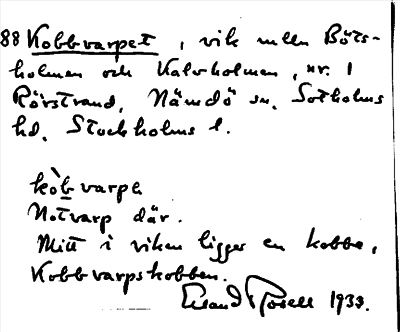 88 Kobbvarpet, vik mellan Båts-
holmen och Kalvholmen, nr. 1
Rörstrand, Nämdö sn, Sotholms
hd, Stockholms l.
kòb varpə
Notvarp där.
Mitt i viken ligger en kobbe,
Kobbvarpskobben.
Erland Rosell 1933.